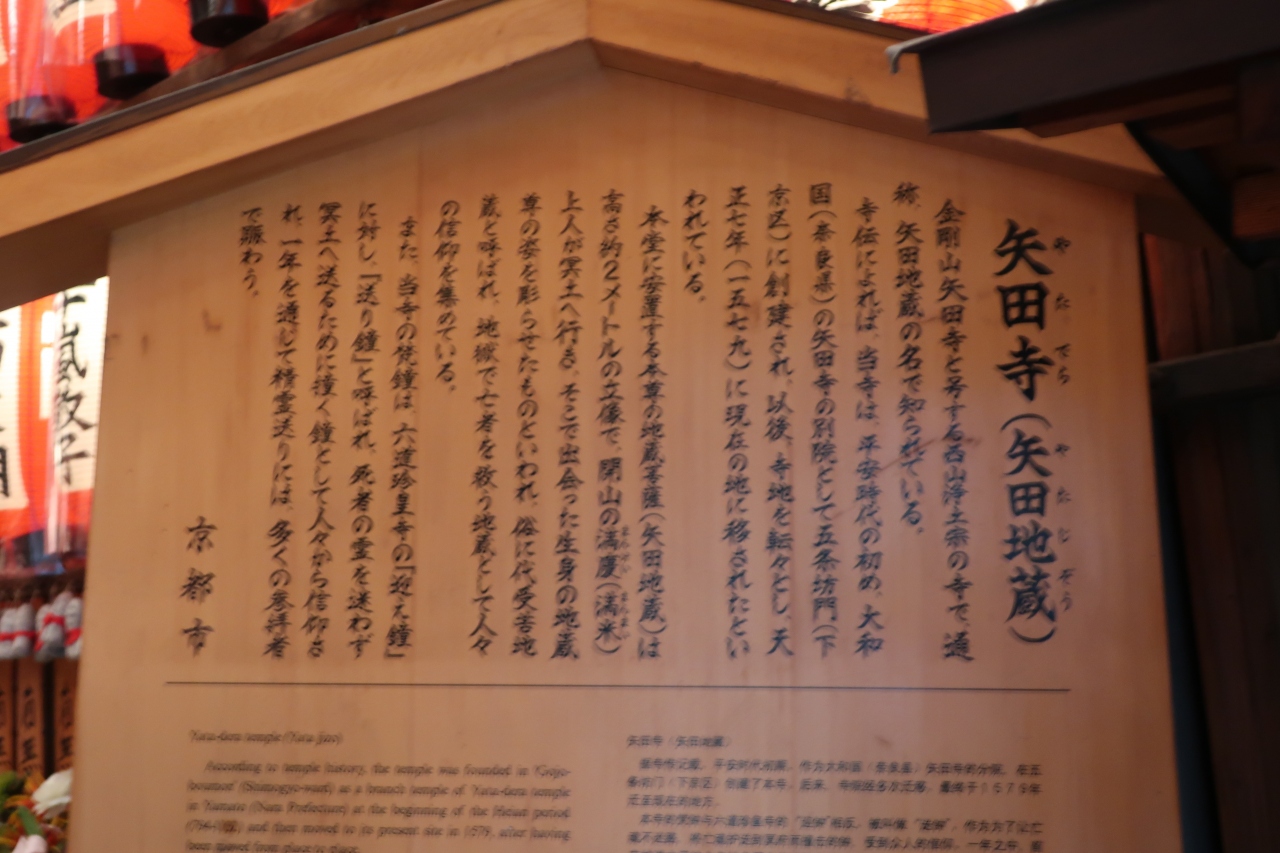 矢田寺（矢田地蔵）
やたでら
やたじぞう
金剛山矢田寺と号する西山浄土宗の寺で、通
称、矢田地蔵の名で知られている。
寺伝によれば、当寺は、平安時代の初め、大和
国（奈良県）の矢田寺の別院として五条坊門（下
京区）に創建され、以後、寺地を転々とし、天
正七年（一五七九）に現在の地に移されたとい
われている。
本堂に安置する本尊の地蔵菩薩（矢田地蔵）は
高さ約2メートルの立像で、開山の満慶（満米）
上人が冥土へ行き、そこで出会った生身の地蔵
尊の姿を彫らせたものといわれ、俗に代受苦地
蔵と呼ばれ、地獄で亡者を救う地蔵として人々
の信仰を集めている。
また、当寺の梵鐘は、六道珍皇寺の「迎え鐘」
に対し、「送り鐘」と呼ばれ、死者の霊を迷わず
冥土へ送るために撞く鐘として人々から信仰さ
れ、一年を通じて精霊送りには、多くの参拝者
で賑わう。
京都市
Yata-dera temple (Yata Jizo)
According to temple history, the temple was founded in 'Gojo-
bomon' (Shimogyo-ward) as a branch temple of Yata-dera temple
in Yamato (Nara Prefecture) at the beginning of the Heian period
and then moved to its present site in 1579, after having
been moved from place to place.
矢田寺（矢田地藏）